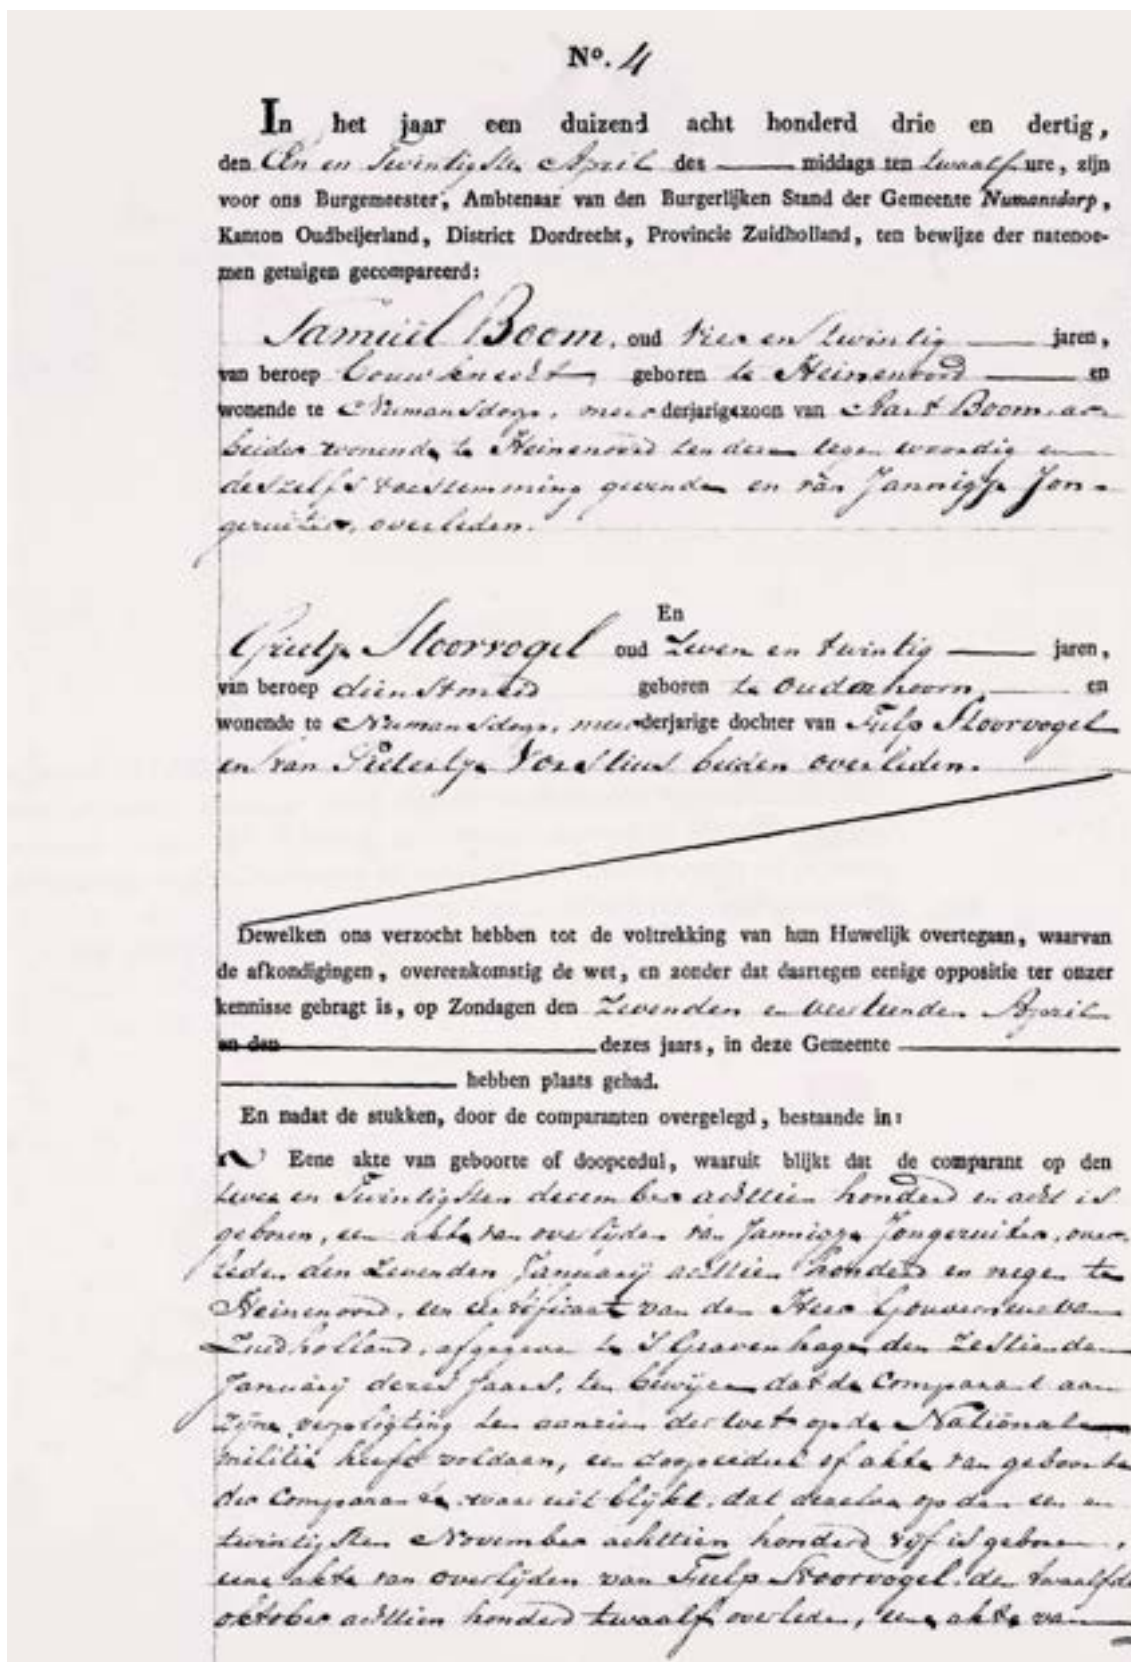 No. 4
In het jaar een duizend acht honderd drie en dertig,
den Een en Twintigsten April des middags ten twaalf ure, zijn
voor ons Burgemeester, Ambtenaar van den Burgerlijken Stand der Gemeente Numansdorp,
Kanton Oudbeijerland, District Dordrecht, Provincie Zuidholland, ten bewijze der natenoe-
men getuigen gecompareerd:
Samuël Boom, oud vier en twintig jaren,
van beroep bouwknecht, geboren te Heinenoord en
wonende te Numansdorp, meerderjarige zoon van Aart Boom, ar-
beider wonende te Heinenoord ten dezen tegenwoordig en
deszelfs toestemming gevende en van Jannigje Jon-
geruiter, overleden.
En
Grietje Stoorvogel oud zeven en twintig jaren,
van beroep dienstmeid geboren te Oudenhoorn, en
wonende te Numansdorp, meerderjarige dochter van Fulp Stoorvogel
en van Pietertje Vorstius beiden overleden.
Dewelken ons verzocht hebben tot de voltrekking van hun Huwelijk overtegaan, waarvan
de afkondigingen, overeenkomstig de wet, en zonder dat daartegen eenige oppositie ter onzer
kennisse gebragt is, op Zondagen den Zevenden en veertienden April
en den dezes jaars, in deze Gemeente
hebben plaats gehad.
En nadat de stukken, door de comparanten overgelegd, bestaande in:
Eene akte van geboorte of doopcedul, waaruit blijkt dat de comparant op den
twee en Twintigsten december achttien honderd en acht is
geboren, een akte van overlijden van Jannigje Jongeruiter, over-
leden den Zevenden Januarij achttien honderd en negen te
Heinenoord, een certificaat van den Heer Gouverneur van
Zuidholland, afgegeven te S Gravenhage den Zestienden
Januarij dezes Jaars, ten bewijze dat de Comparant aan
zijne verpligting ten aanzien der wet op de Nationale
militie heeft voldaan, een doopcedul of akte van geboorte
der Comparante, waaruit blijkt, dat dezelve op den een en
twintigsten November achttien honderd vijf is geboren,
eene akte van overlijden van Fulp Stoorvogel, den twaalfde
oktober achttien honderd twaalf overleden, eene akte van